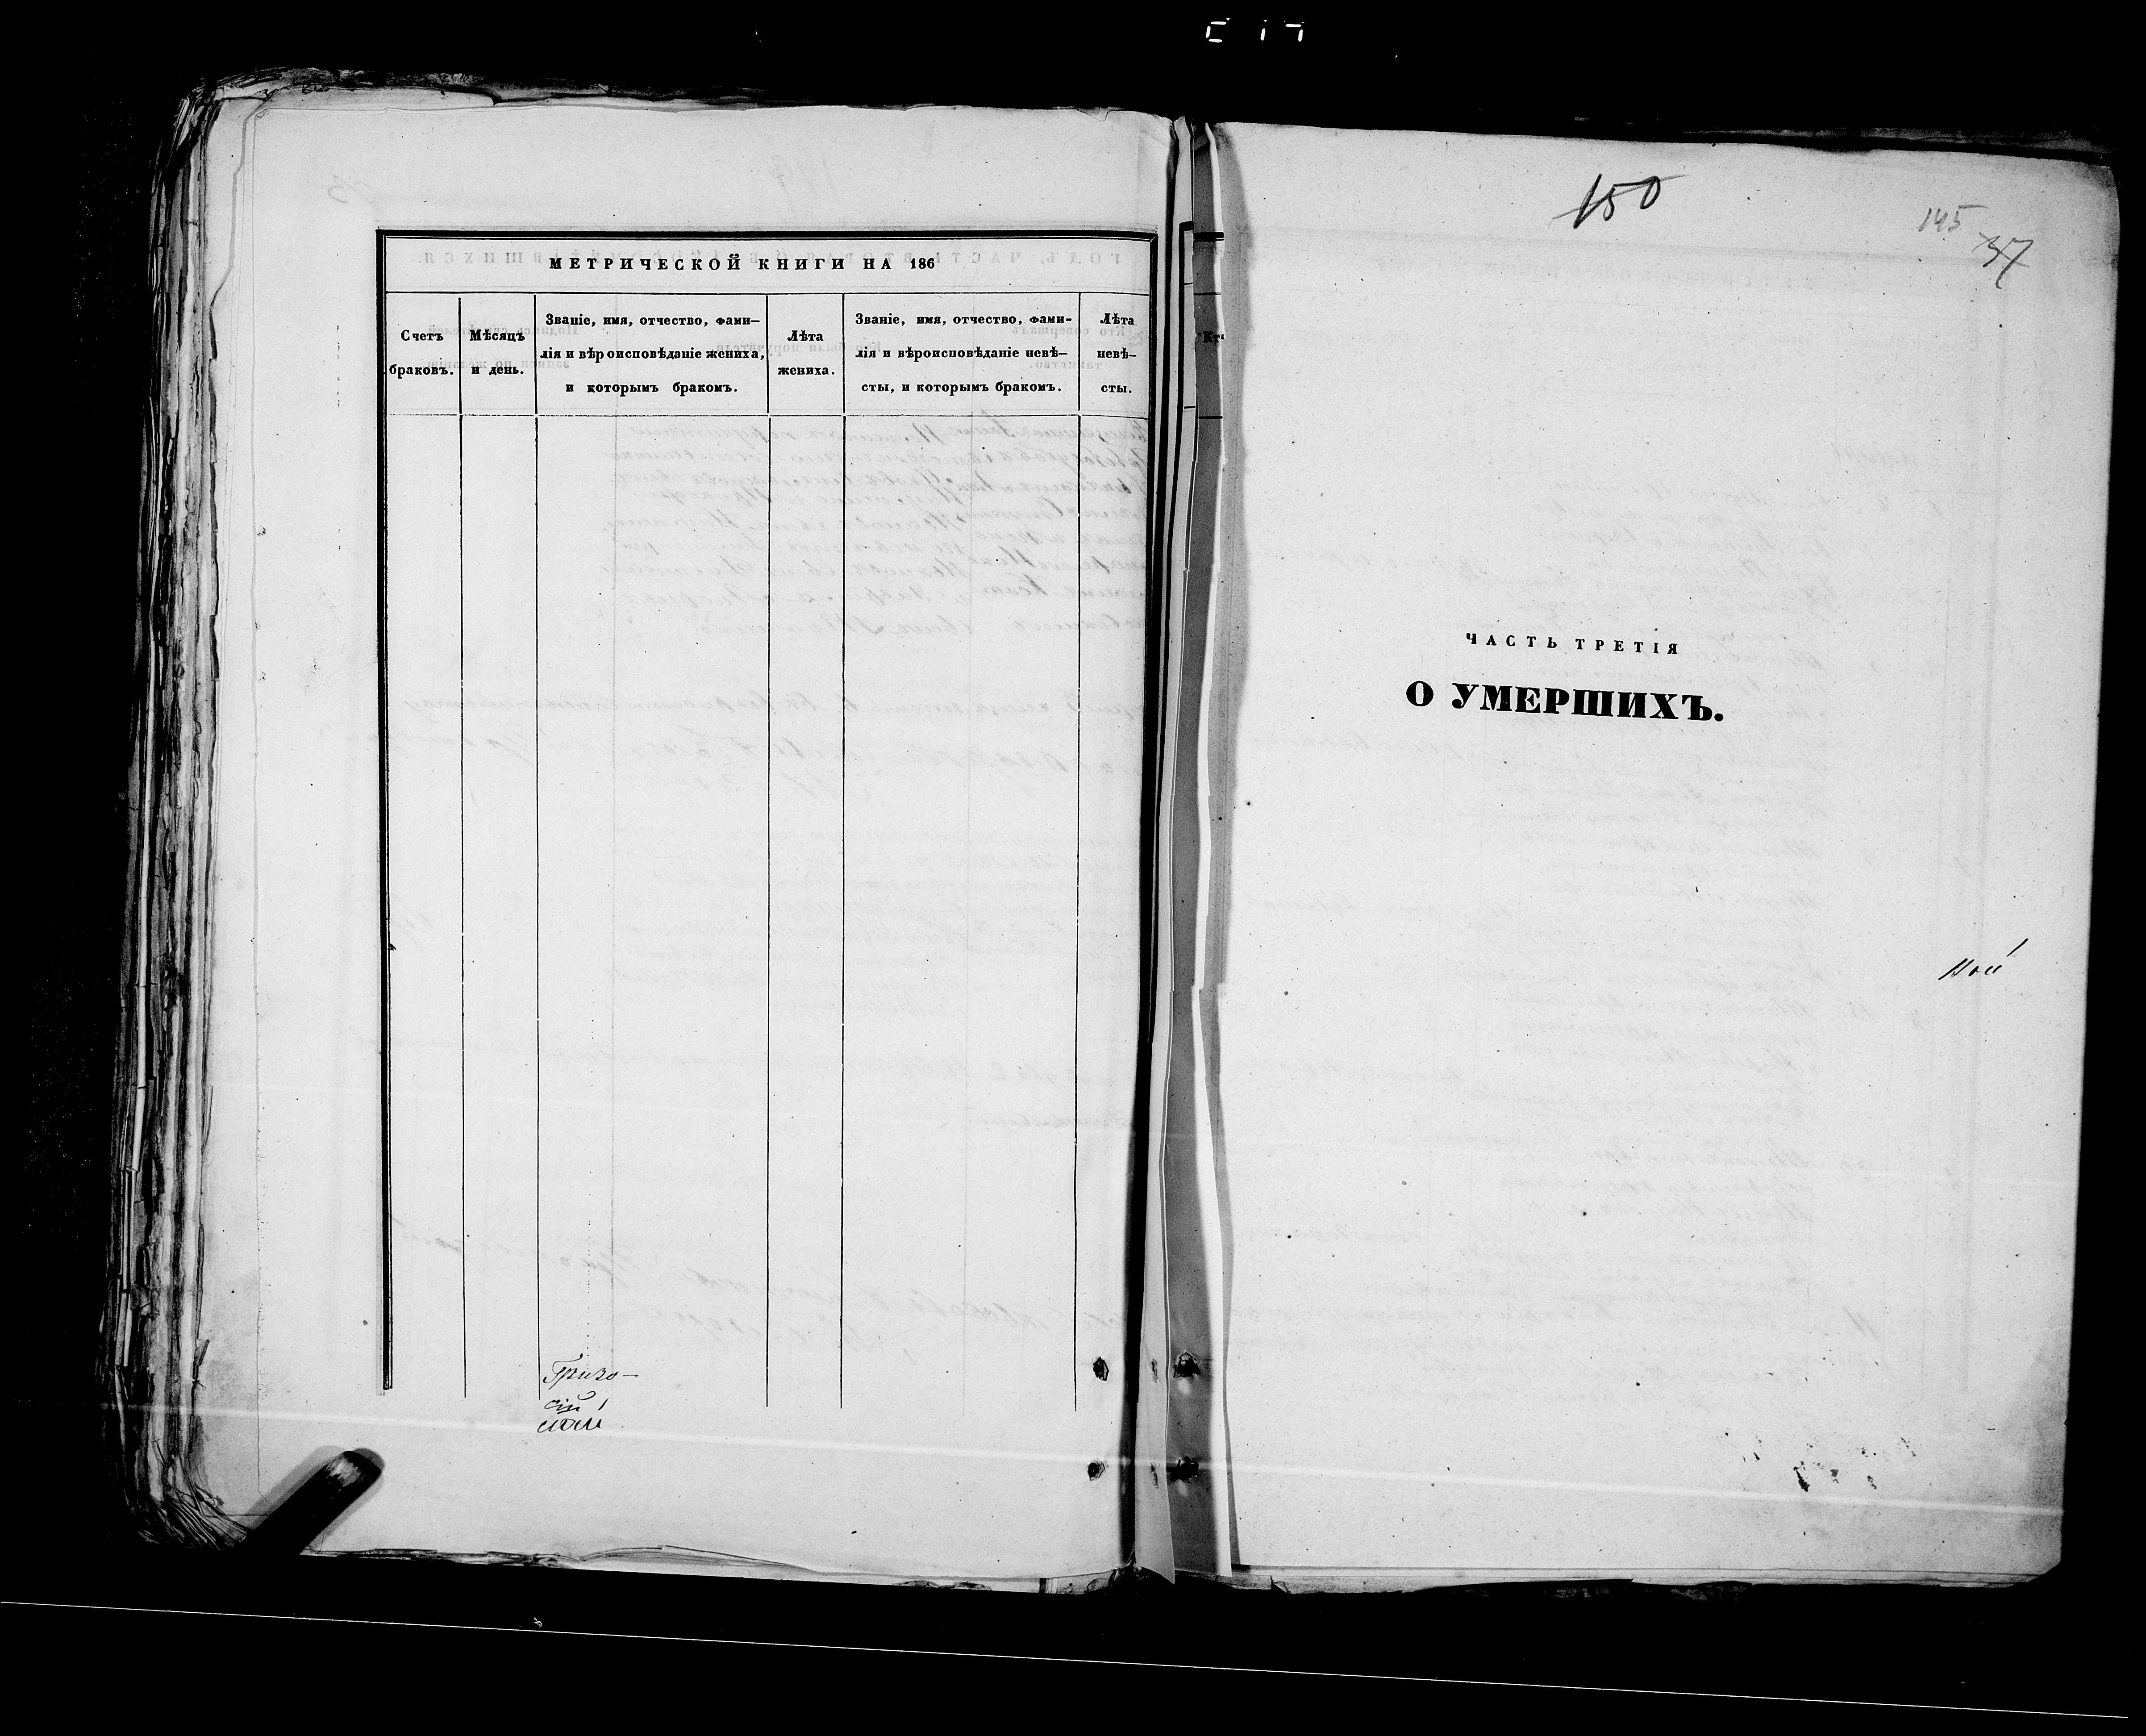 МЕТРИЧЕСКОЙ КНИГИ НА 186
Счетъ
браковъ.
Мѣсяцъ
и день.
Званіе, имя, отчество, фами—
лія и вѣроисповѣданіе жениха,
и которымъ бракомъ.
Лѣта
жениха.
Званіе, имя, отчество, фами-
лія и вѣроисповѣданіе невѣ—
сты, и которымъ бракомъ.
Лѣта
невѣ—
сты.
150
145
37
ЧАСТЬ ТРЕТІЯ
О УМЕРШИХЪ.